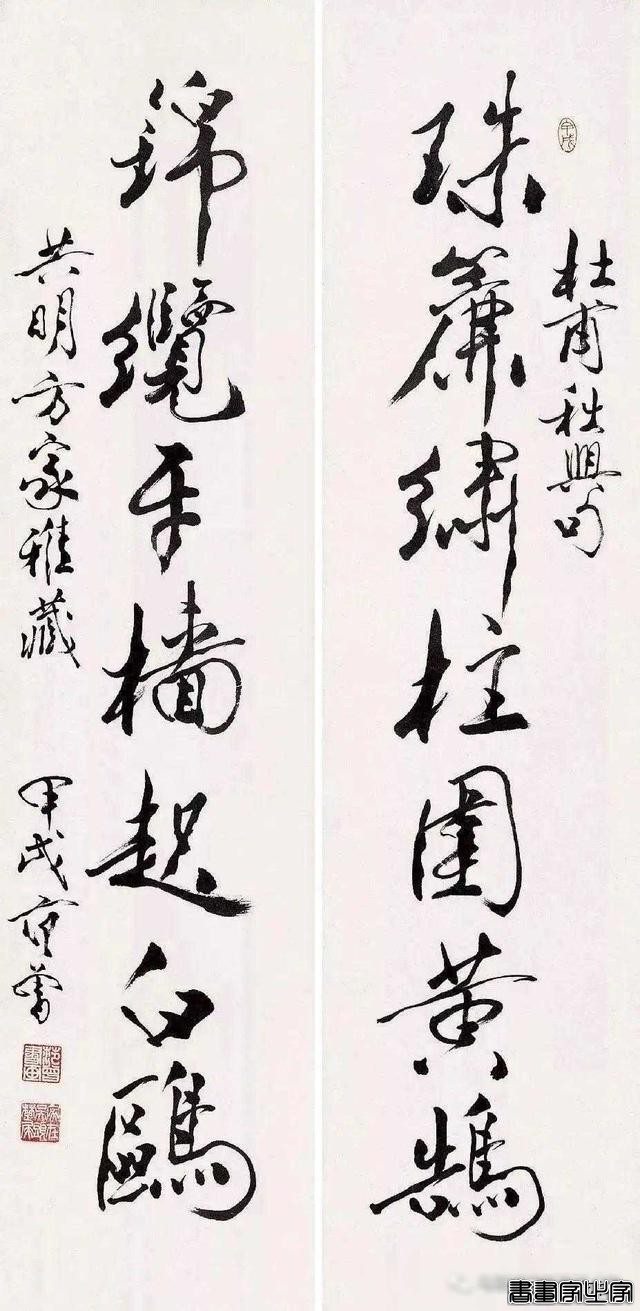 甲戌
杜甫秋興句
珠簾繡柱圍黃鵠
錦纜牙檣起白鷗
共明方家雅藏
甲戌 范曾
書畫家之家